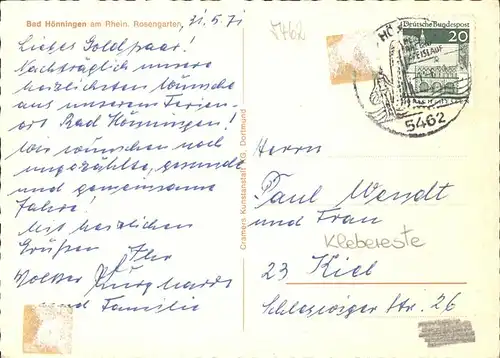 Bad Hönningen am Rhein. Rosengarten
31.5.71
5462
Liebes Goldpaar!
Nachträglich unsere
herzlichsten Wünsche
aus unserem Ferien-
ort Bad Hönningen!
Wir wünschen noch
ungezählte, gesunde
und gemeinsame
Jahre!
Mit herzlichen
Grüßen Ihr
Volker
und Familie
Cramers Kunstanstalt KG, Dortmund
Deutsche Bundespost
20
5462
Herrn
Paul Wendt
und Frau
Klebereste
23 Kiel
Schleswiger Str. 26